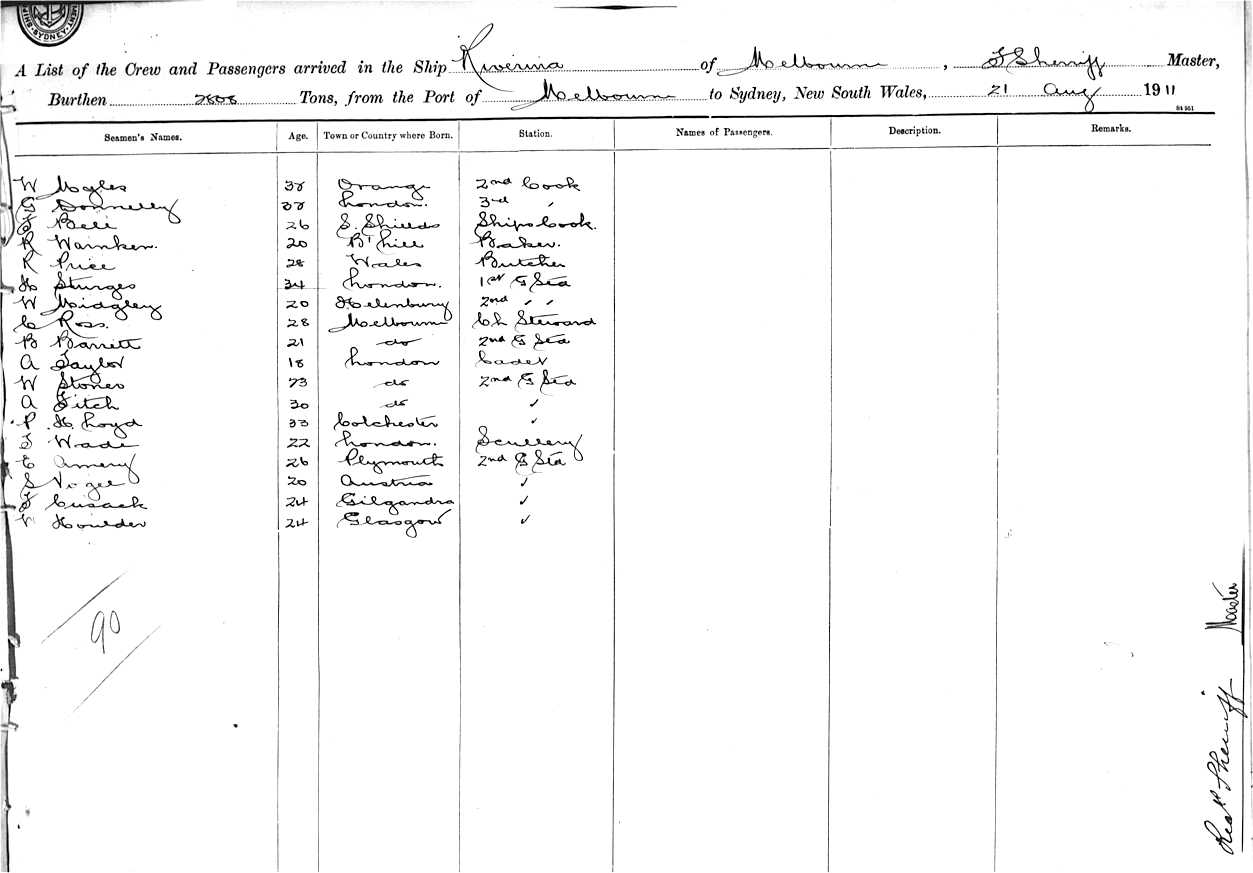 MENT. SYDNEY. SHIP
A List of the Crew and Passengers arrived in the Ship Riverina of Melbourne, Sherriff Master,
Burthen 2808 Tons, from the Port of Melbourne to Sydney, New South Wales, 21 Aug 1911
Seamen's Names. Age. Town or Country where Born. Station. Names of Passengers. Description. Remarks.
W Myles 38 Orange 2nd Cook
G Donnelly 38 London. 3rd "
F Bell 26 S. Shields Ships Cook.
R Warnken. 20 B' hill Baker.
R Price 28 Wales Butcher
H Sturges 34 London. 1st G Std
W Midgley 20 2nd " "
C Ross. 28 Melbourne Ch Steward
B Barrett 21 do 2nd G Std
A Taylor 18 London Cadet
W Stones 23 do 2nd G Std
A Fitch 30 do ✓
P. H. Loyd 33 Colchester ✓
F Wade 22 London. Scullery
E Amery 26 Plymouth 2nd G Std
S 20 Austria ✓
F Cusack 24 Gilgandra ✓
W Houlder 24 Glasgow ✓
90
Sherriff Master